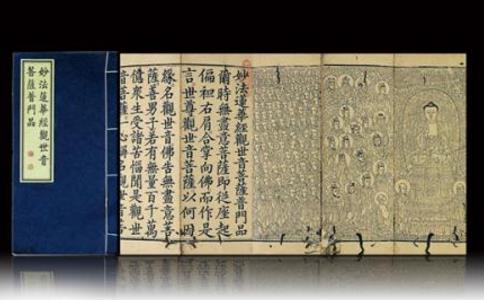 妙法蓮華經觀世音
菩薩普門品
妙法蓮華經觀世音菩薩普門品
爾時無盡意菩薩即從座起
偏袒右肩合掌向佛而作是
言世尊觀世音菩薩以何因
緣名觀世音佛告無盡意菩
薩善男子若有無量百千萬
億衆生受諸苦惱聞是觀世
音菩薩一心稱名觀世音